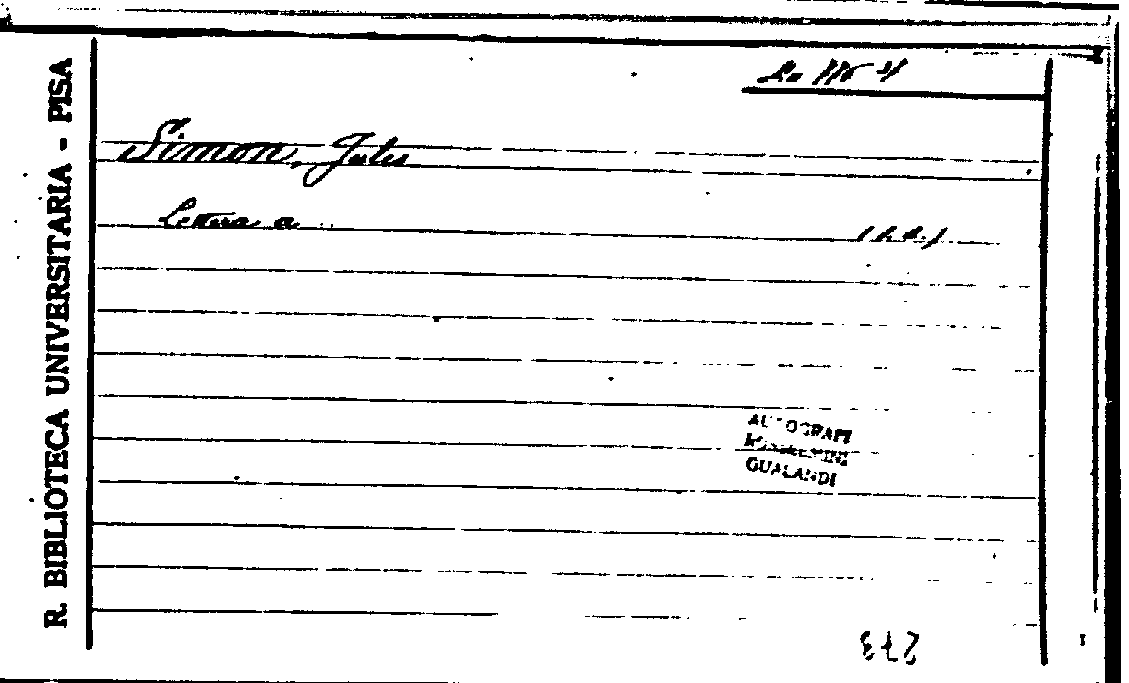 R. BIBLIOTECA UNIVERSITARIA - PISA
Simon, Jules
Lettera a
AUTOGRAFI
GUALANDI
273